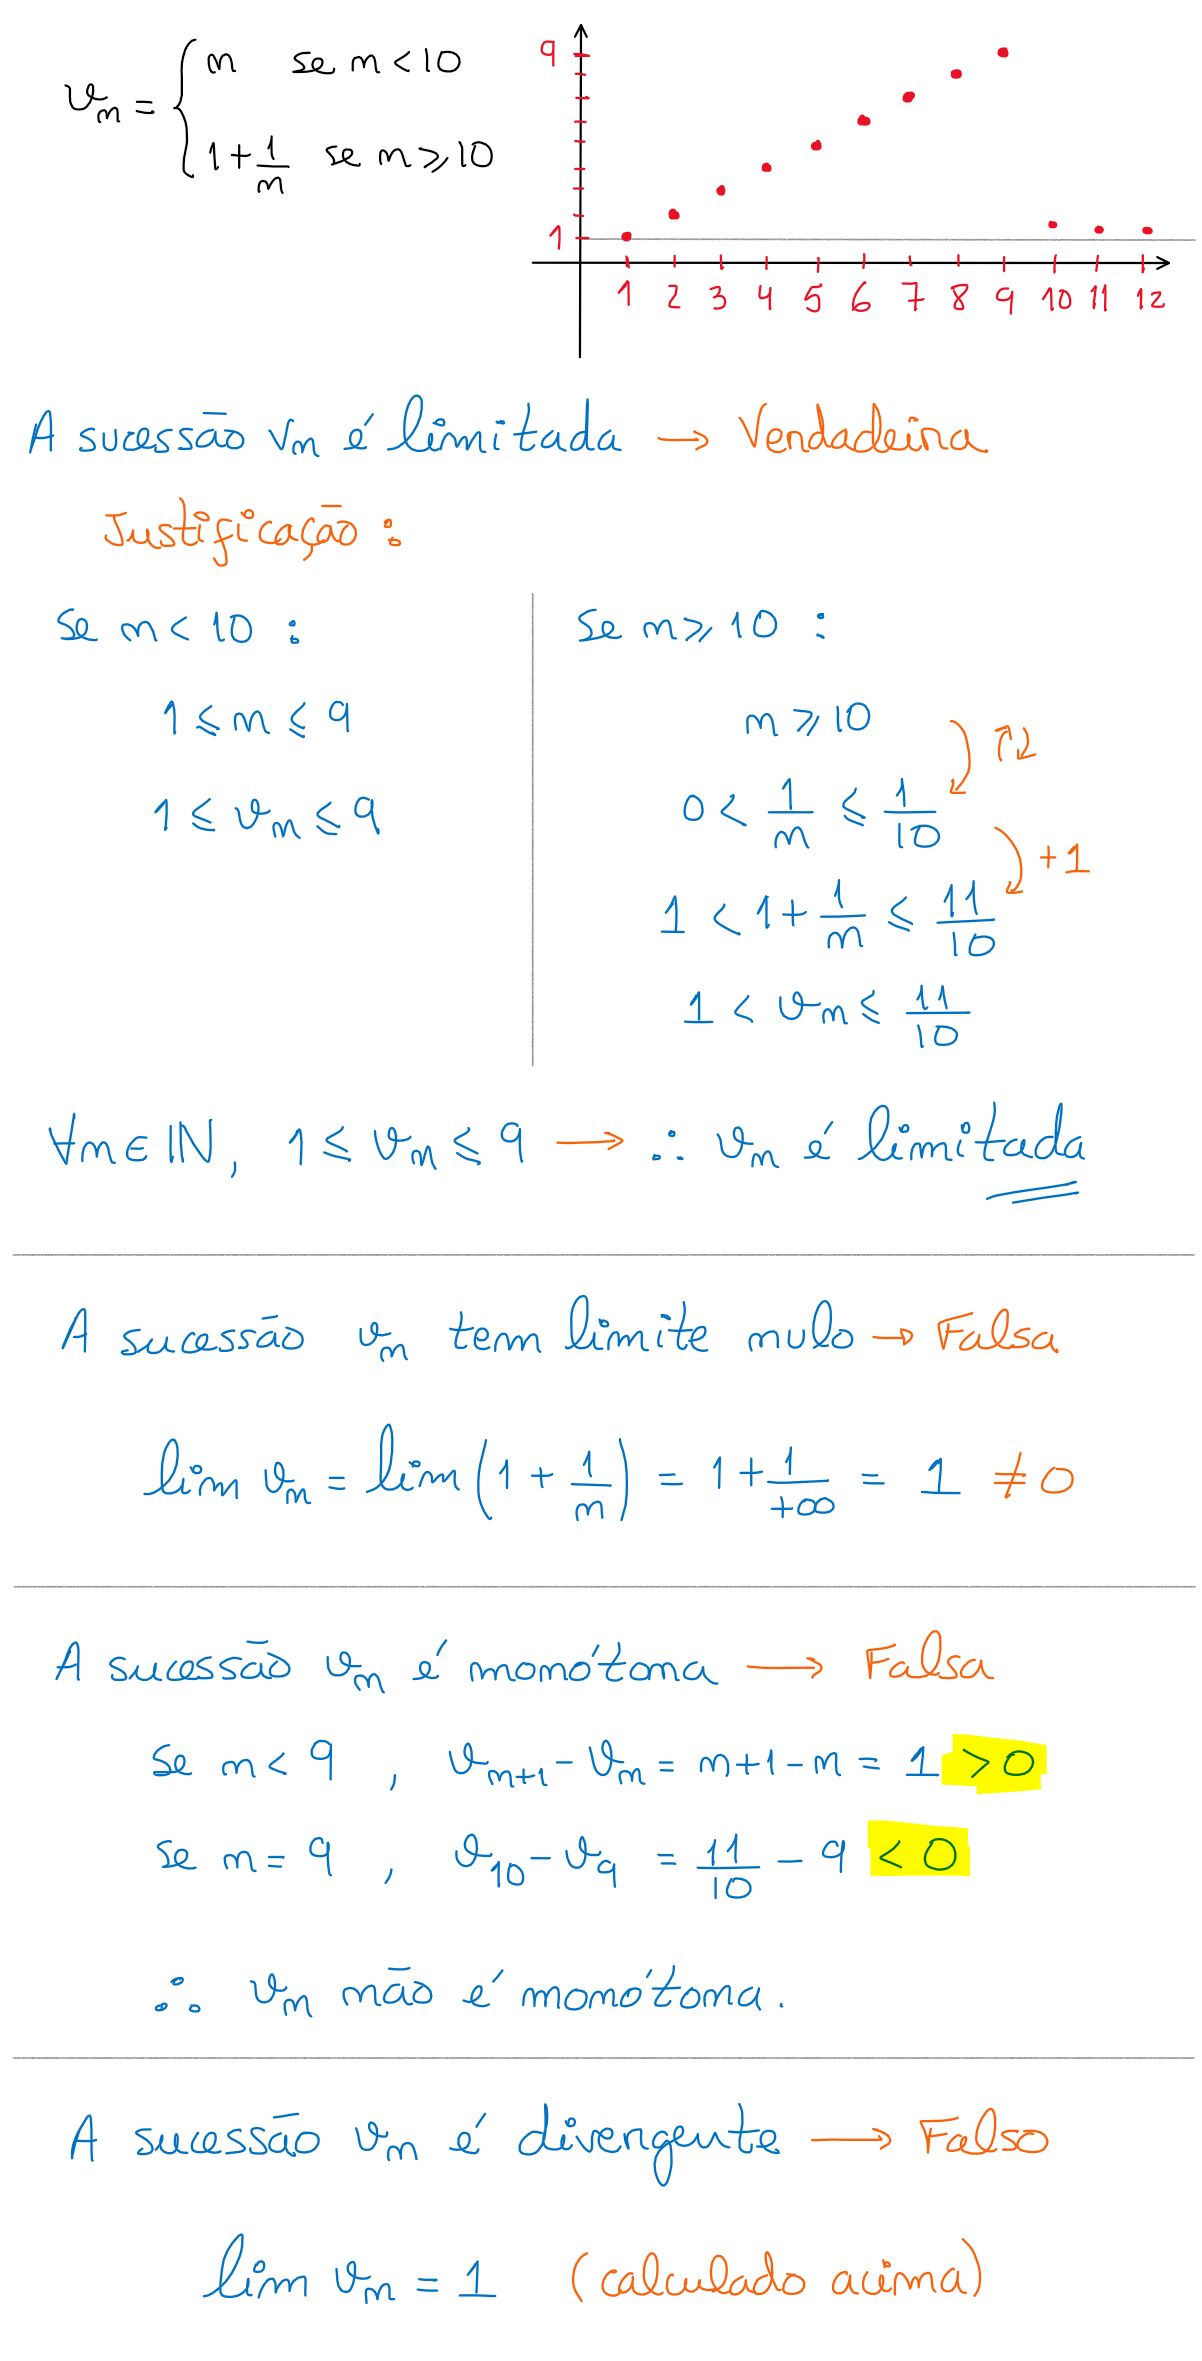 vn = { n se n < 10
1 + 1/n se n ⩾ 10
9
1
1 2 3 4 5 6 7 8 9 10 11 12
A sucessão vn é limitada → Verdadeira
Justificação :
Se n < 10 :
1 ⩽ n ⩽ 9
1 ⩽ vn ⩽ 9
Se n ⩾ 10 :
n ⩾ 10
0 < 1/n ⩽ 1/10
+1
1 < 1 + 1/n ⩽ 11/10
1 < vn ⩽ 11/10
∀n ∈ IN, 1 ⩽ vn ⩽ 9 → ∴ vn é limitada
A sucessão vn tem limite nulo → Falsa
lim vn = lim (1 + 1/n) = 1 + 1/+∞ = 1 ≠ 0
A sucessão vn é monótona → Falsa
Se n < 9 , vn+1 - vn = n+1-n = 1 > 0
Se n = 9 , v10 - v9 = 11/10 - 9 < 0
∴ vn não é monótona.
A sucessão vn é divergente → Falso
lim vn = 1 (calculado acima)